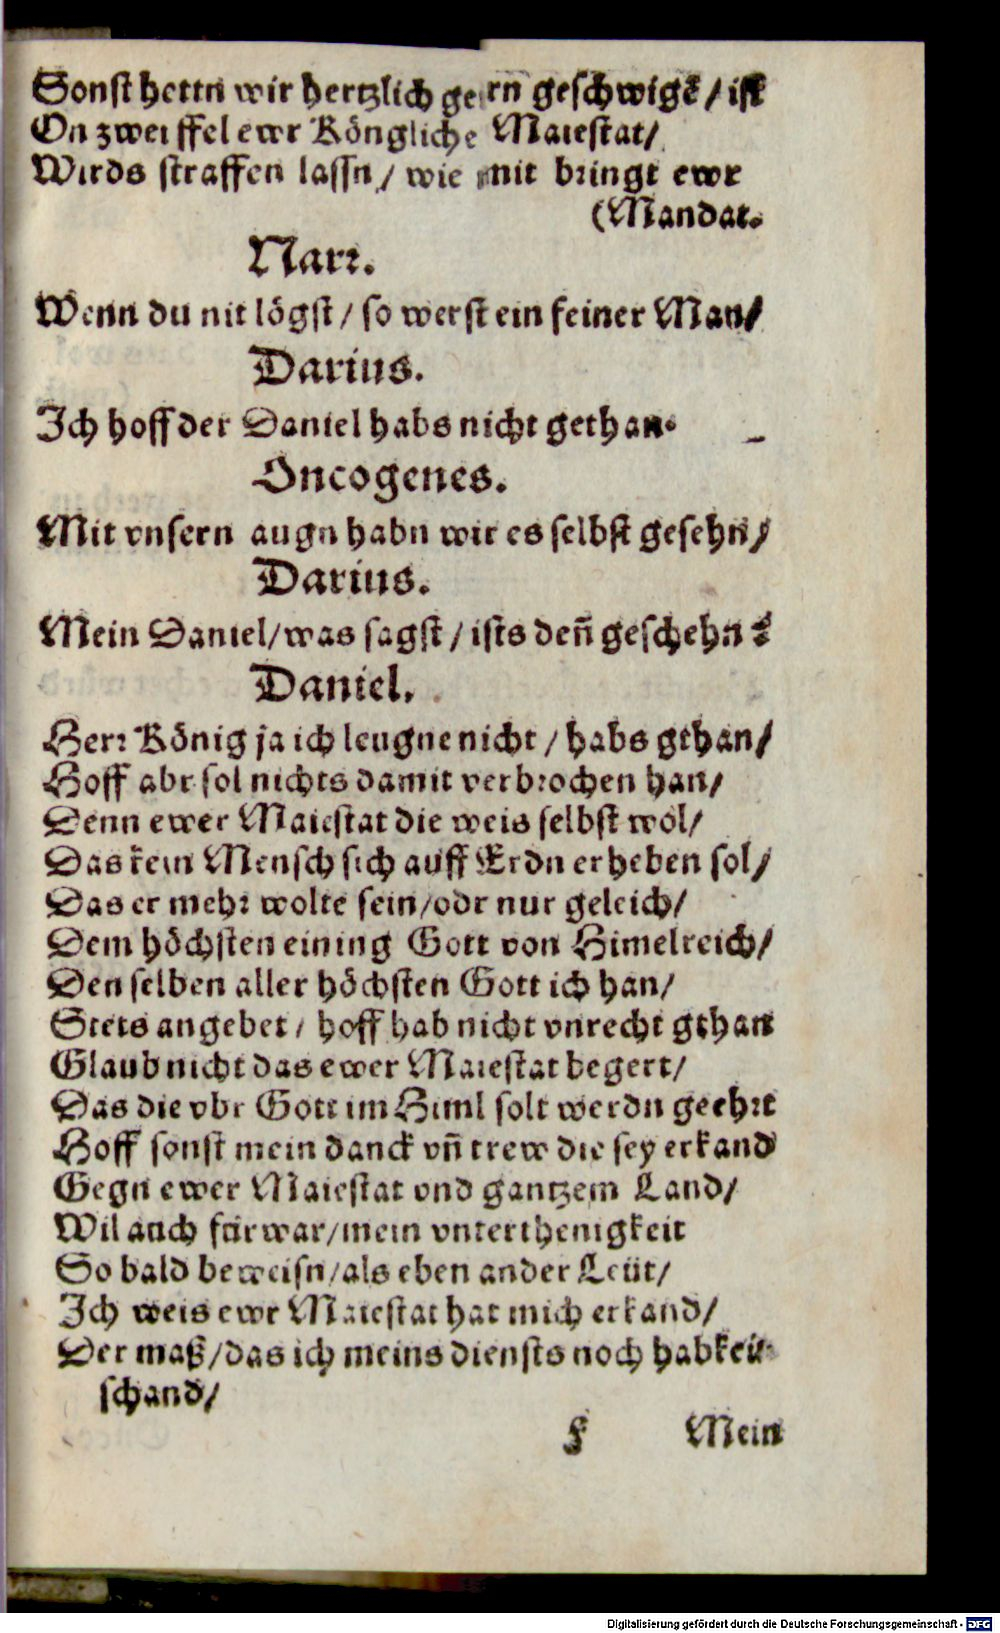 Sonst hettn wir hertzlich gern geschwigẽ / ist
On zweiffel ewr Köngliche Maiestat /
Wirds straffen lassn / wie mit bringt ewr
(Mandat.
Narr.
Wenn du nit lögst / so werst ein feiner Man /
Darius.
Ich hoff der Daniel habs nicht gethan.
Oncogenes.
Mit vnsern augn habn wir es selbst gesehn /
Darius.
Mein Daniel / was sagst / ists deñ geschehn ?
Daniel.
Herr König ja ich leugne nicht / habs gthan /
Hoff abr sol nichts damit verbrochen han /
Denn ewer Maiestat die weis selbst wol /
Das kein Mensch sich auff Erdn erheben sol /
Das er mehr wolte sein / odr nur geleich /
Dem höchsten eining Gott von Himelreich /
Den selben aller höchsten Gott ich han /
Stets angebet / hoff hab nicht vnrecht gthan
Glaub nicht das ewer Maiestat begert /
Das die vbr Gott im Himl solt werdn geehrt
Hoff sonst mein danck vñ trew die sey erkand
Gegn ewer Maiestat vnd gantzem Land /
Wil auch fürwar / mein vnterthenigkeit
So bald beweisn / als eben ander Leüt /
Ich weis ewr Maiestat hat mich erkand /
Der maß / das ich meins diensts noch hab kein
schand /
F Mein
Digitalisierung gefördert durch die Deutsche Forschungsgemeinschaft - DFG